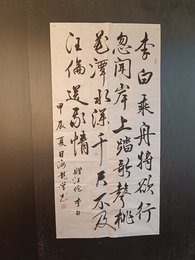 李白乘舟将欲行
忽闻岸上踏歌声桃
花潭水深千尺不及
汪倫送我情
赠汪伦 李白
甲辰夏日